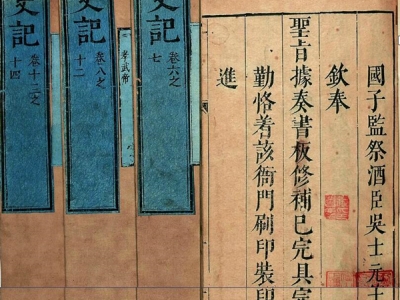 國子監祭酒臣吳士元
欽奉
聖旨據奏書板修補已完具
勤恪着該衙門刷印裝印
進
史記
卷六之
七
孝武帝
史記
卷八之
十二
史記
卷十三之
十四